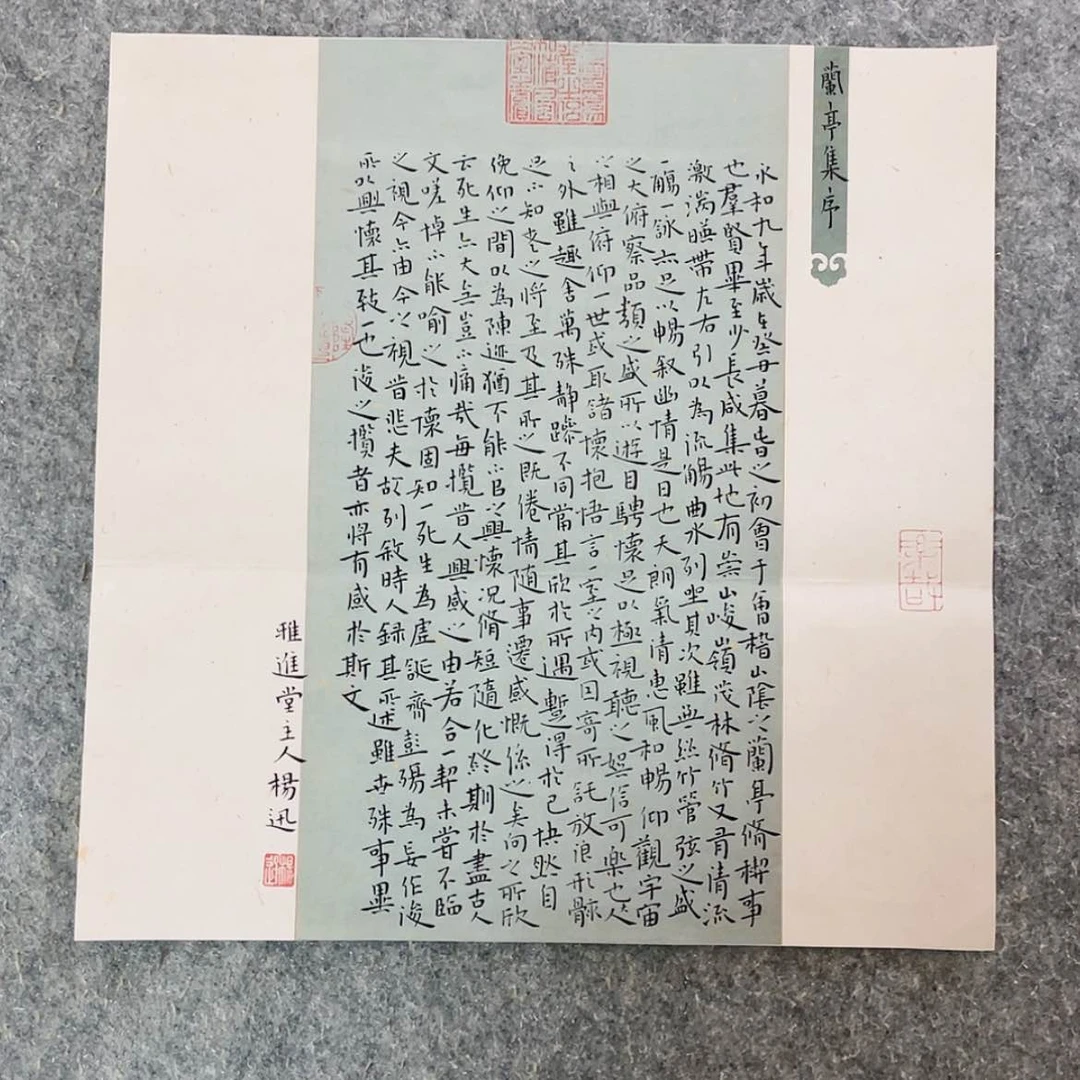 蘭亭集序
永和九年歲在癸丑暮春之初會于會稽山陰之蘭亭脩禊事
也羣賢畢至少長咸集此地有崇山峻嶺茂林脩竹又有清流
激湍暎帶左右引以為流觴曲水列坐其次雖無絲竹管弦之盛
一觴一詠亦足以暢叙幽情是日也天朗氣清惠風和暢仰觀宇宙
之大俯察品類之盛所以遊目騁懷足以極視聽之娛信可樂也夫人
之相與俯仰一世或取諸懷抱悟言一室之内或因寄所託放浪形骸
之外雖趣舍萬殊静躁不同當其欣於所遇蹔得於己怏然自
足不知老之將至及其所之既倦情隨事遷感慨係之矣向之所欣
俛仰之間以為陳迹猶不能不以之興懷况脩短隨化終期於盡古人
云死生亦大矣豈不痛哉每攬昔人興感之由若合一契未嘗不臨
文嗟悼不能喻之於懷固知一死生為虛誕齊彭殤為妄作後
之視今亦由今之視昔悲夫故列敘時人録其所述雖世殊事異
所以興懷其致一也後之攬者亦將有感於斯文
雅進堂主人楊迅